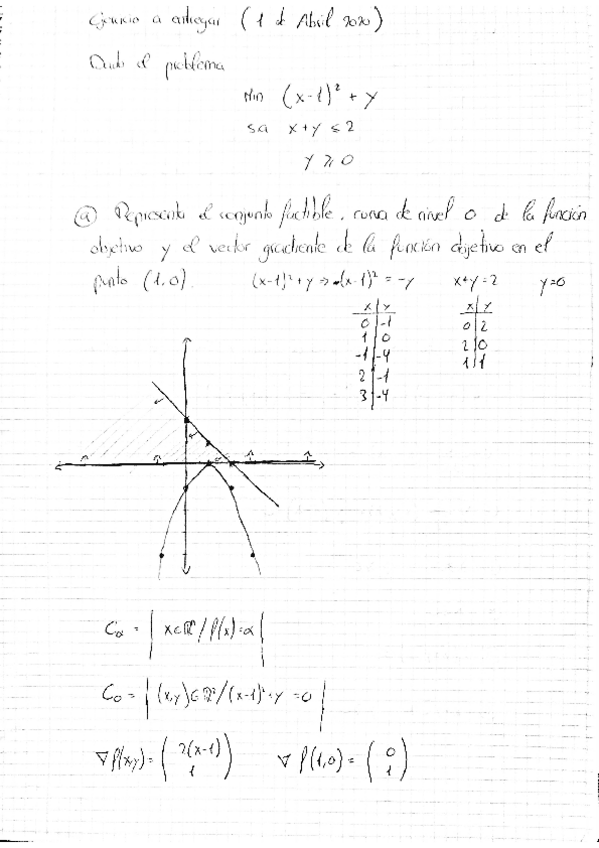 Ejercicio a entregar (1 de Abril 2020)
Dado el problema
Min (x-1)² + y
sa x+y ≤ 2
y ≥ 0
ⓐ Representa el conjunto factible, curva de nivel 0 de la función
objetivo y el vector gradiente de la función objetivo en el
punto (1,0). (x-1)²+y → (x-1)² = -y x+y=2 y=0
x | y x | y
0 | -1 0 | 2
1 | 0 2 | 0
-1 | -4 1 | 1
2 | -1
3 | -4
Cα = | x∈ℝⁿ / f(x)=α |
C₀ = | (x,y)∈ℝ² / (x-1)²+y = 0 |
∇f(x,y) = ( 2(x-1) ) ∇f(1,0) = ( 0 )
1 1